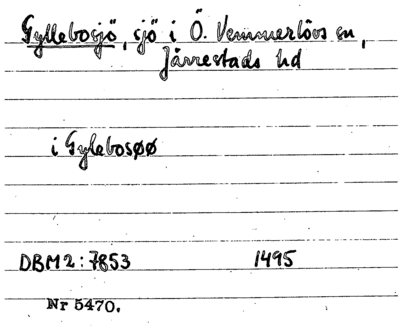 Gyllebosjö, sjö i Ö. Vemmerlövs sn,
Järrestads hd
i Gylebosøø
DBM2:7853 1495
Nr 5470.